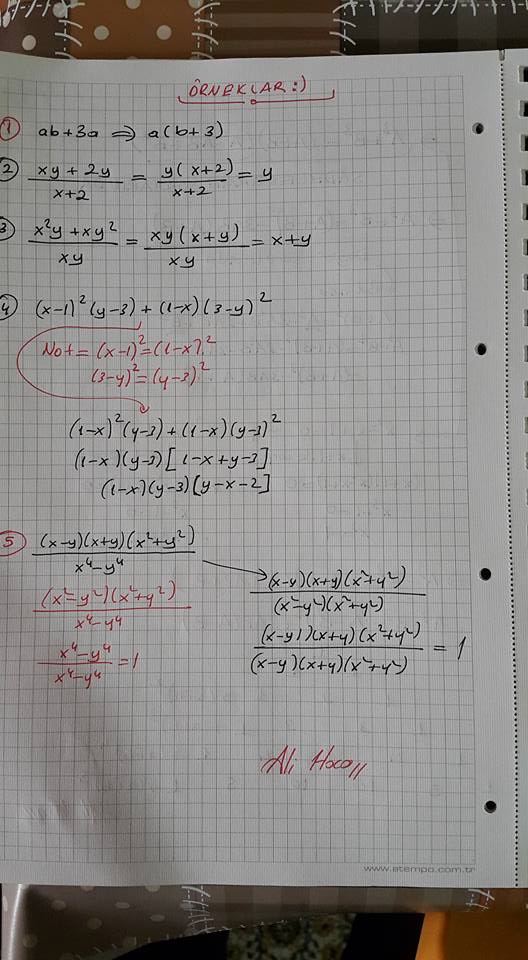 ÖRNEKLAR :)
1 ab+3a ⇒ a(b+3)
2 (xy+2y)/(x+2) = y(x+2)/(x+2) = y
3 (x²y+xy²)/(xy) = xy(x+y)/(xy) = x+y
4 (x-1)²(y-3)+(1-x)(3-y)²
Not= (x-1)²=(1-x)²
(3-y)²=(y-3)²
(1-x)²(y-3)+(1-x)(y-3)²
(1-x)(y-3)[1-x+y-3]
(1-x)(y-3)[y-x-2]
5 (x-y)(x+y)(x²+y²)/(x⁴-y⁴)
(x²-y²)(x²+y²)/(x⁴-y⁴)
(x⁴-y⁴)/(x⁴-y⁴) = 1
(x-y)(x+y)(x²+y²)/((x²-y²)(x²+y²))
(x-y)(x+y)(x²+y²)/((x-y)(x+y)(x²+y²)) = 1
Ali Hoca
www.atempo.com.tr